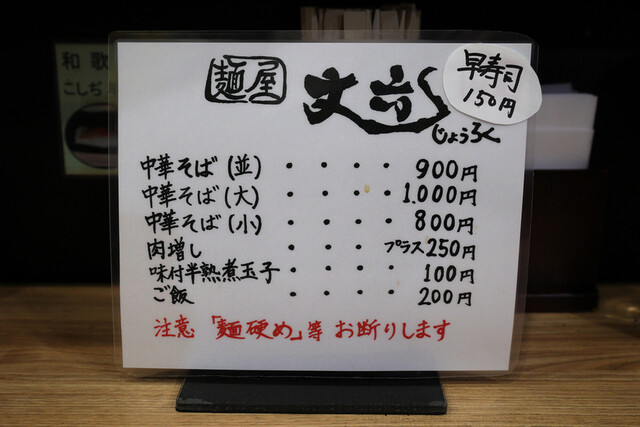 和歌
こしぢ
麺屋 丈六
じょうろく
早寿司
150円
中華そば(並)・・・・900円
中華そば(大)・・・・1,000円
中華そば(小)・・・・800円
肉増し・・・・プラス250円
味付半熟煮玉子・・・・100円
ご飯・・・・200円
注意 「麺硬め」等 お断りします